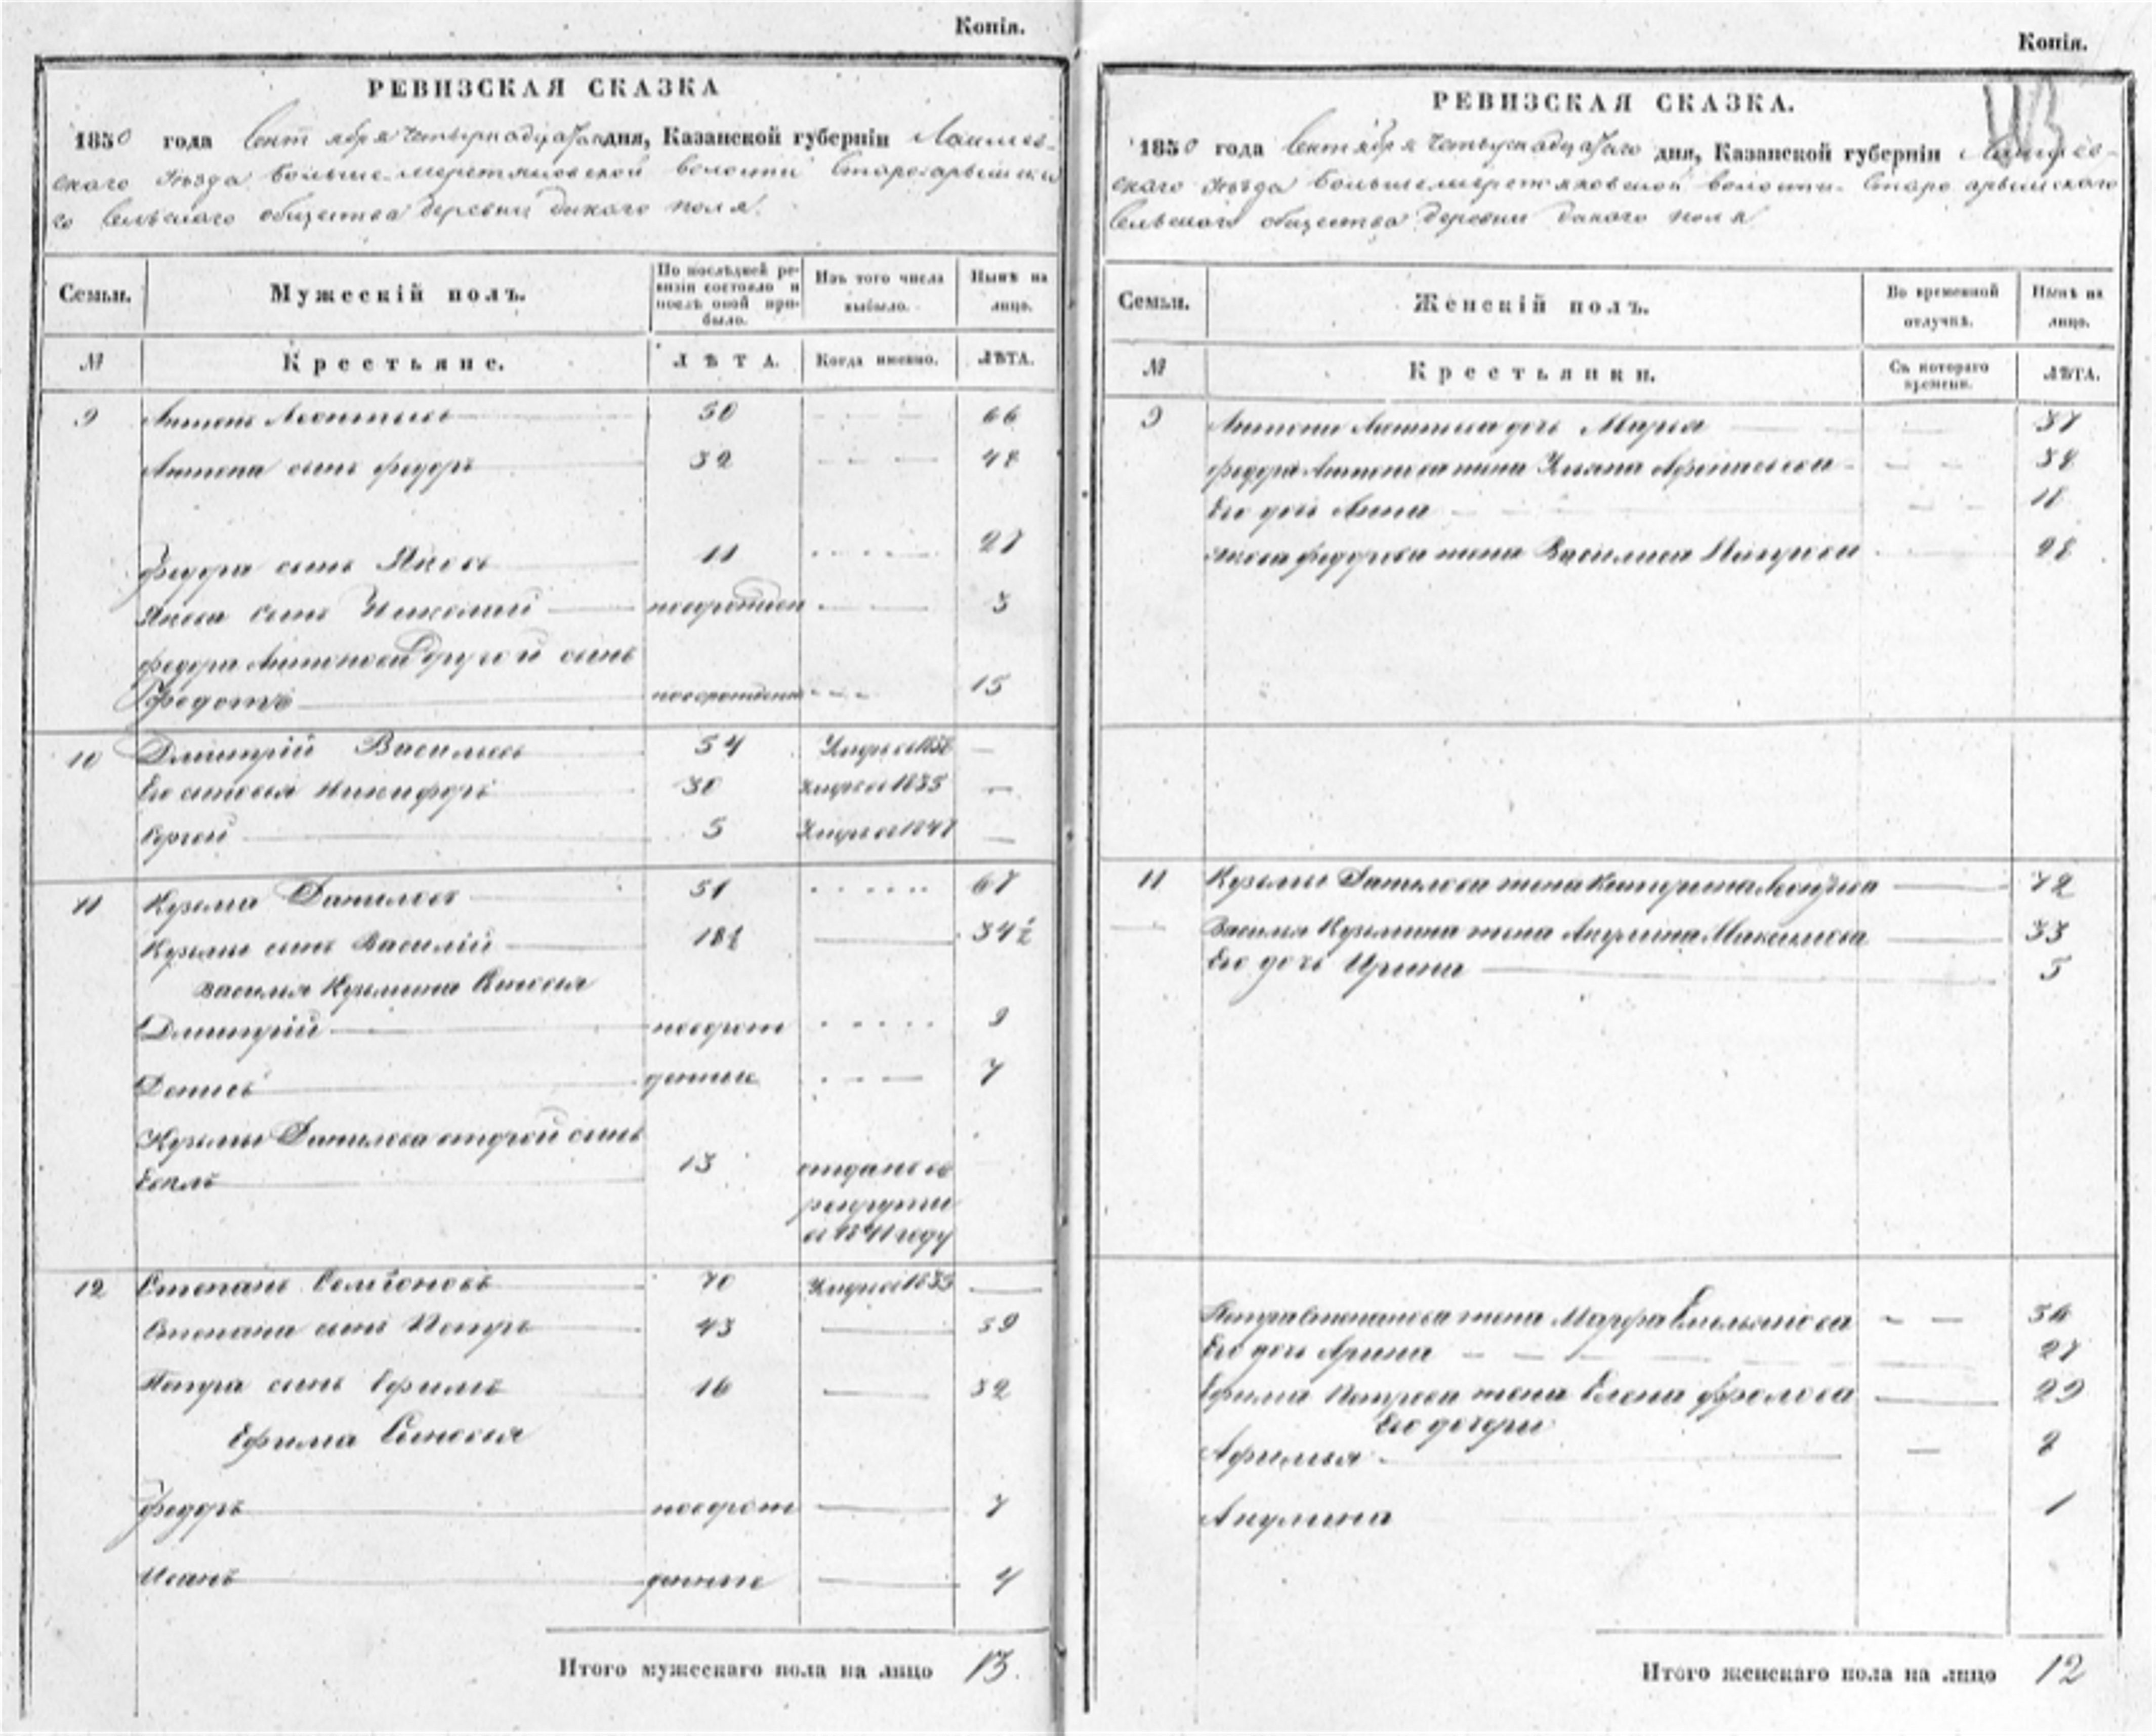 Копія.
РЕВИЗСКАЯ СКАЗКА
1850 года Сентября четырнадцатаго дня, Казанской губерніи Лаишев-
скаго уѣзда Больше-меретяковской волости Староарышска
го Сельскаго общества деревни дикаго поля.
Семьи. Мужескій полъ. По послѣдней ре-визіи состояло и послѣ оной при-было. Изъ того числа выбыло. Нынѣ на лицо.
№ Крестьяне. ЛѢТА. Когда именно. ЛѢТА.
9 Антонъ Леонтьевъ 50 66
Антона сынъ федоръ 32 48
федора сынъ Яковъ 11 27
Якова сынъ Николай новорожден 3
федора Антонова Другой сынъ
Федотъ новорожденъ 15
10 Дмитрій Васильевъ 54 —
Его сыновья Никифоръ 30 Умре въ 1835 —
Сергей 5 Умре въ 1847 —
11 Кузьма Даниловъ 51 67
Кузьмы сынъ Василій 18½ 34½
Василья Кузьмина Сыновья
Дмитрій новорож 9
Денисъ денные 7
Кузьмы Данилова второй сынъ
13 отданъ въ
рекруты
въ 1841 году
12 Степанъ Семёновъ 70 Умре въ 1835 —
Степана сынъ Петръ 43 — 59
Петра сынъ Ефимъ 16 — 32
Ефима Сыновья
федоръ новорож — 7
Иванъ денные — 4
Итого мужескаго пола на лицо 13.
Копія.
РЕВИЗСКАЯ СКАЗКА.
1850 года Сентября четырнадцатаго дня, Казанской губерніи Лаишев-
скаго уѣзда Большемеретяковской волости Староарышскаго
Сельскаго общества деревни дикаго поля
Семьи. Женскій полъ. Во временной отлучкѣ. Нынѣ на лицо.
№ Крестьянки. Съ котораго времени. ЛѢТА.
9 Антона Леонтьева дочь Марья 37
федора Антонова жена Ульяна 
Его дочь Анна 18
Якова федорова жена Василиса 28
11 Кузьмы Данилова жена Катерина 72
Василья Кузьмина жена Акулина Максимова 33
Его дочь Ирина 5
Петра Степанова жена Марфа Емельянова
Его дочь Арина 27
Ефима Петрова жена Елена фролова 29
Его дочери
Афимья
Акулина 1
Итого женскаго пола на лицо 12